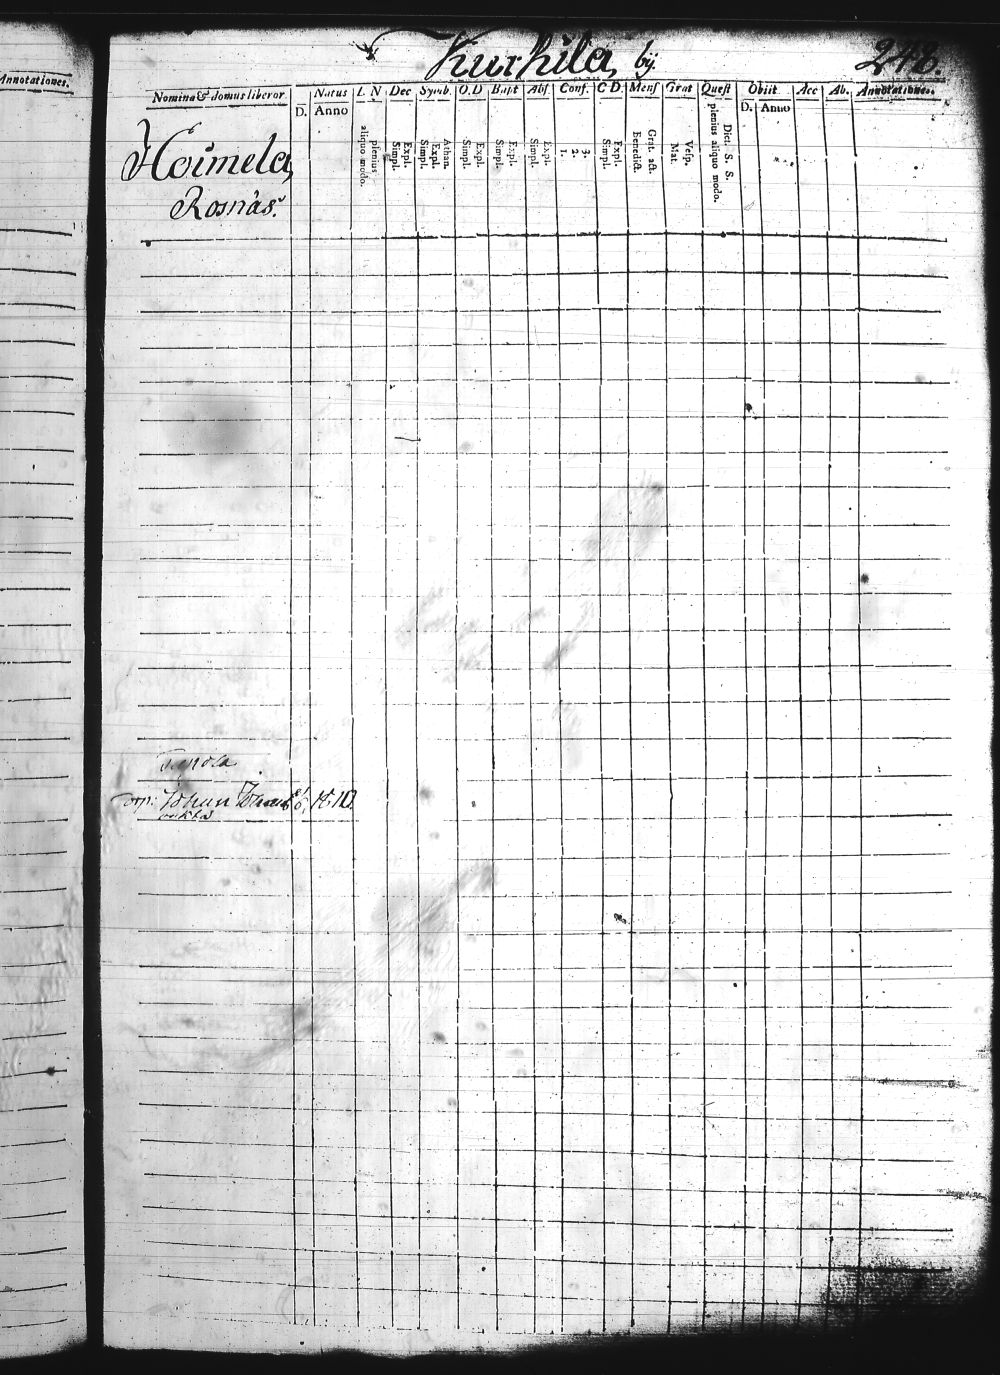 Annotationes.
Kurkila, by.
242.
Nomina & domus liberor. Natus L N Dec Symb. O.D Bapt Abs. Conf. C D. Mens Grat Quest Obiit Acc Ab. Annotationes.
D. Anno D. Anno
plenius aliquo modo. Expl. Simpl. Athan. Expl. Simpl. Expl. Simpl. Expl. Simpl. Expl. Simpl. 3. 2. 1. Expl. Simpl. Grat. act. Benedict. Vesp. Mat. Dict. S. S. plenius aliquo modo.
Hoimela,
Rosnäs.
Tapola
Torp: Johan 1810.